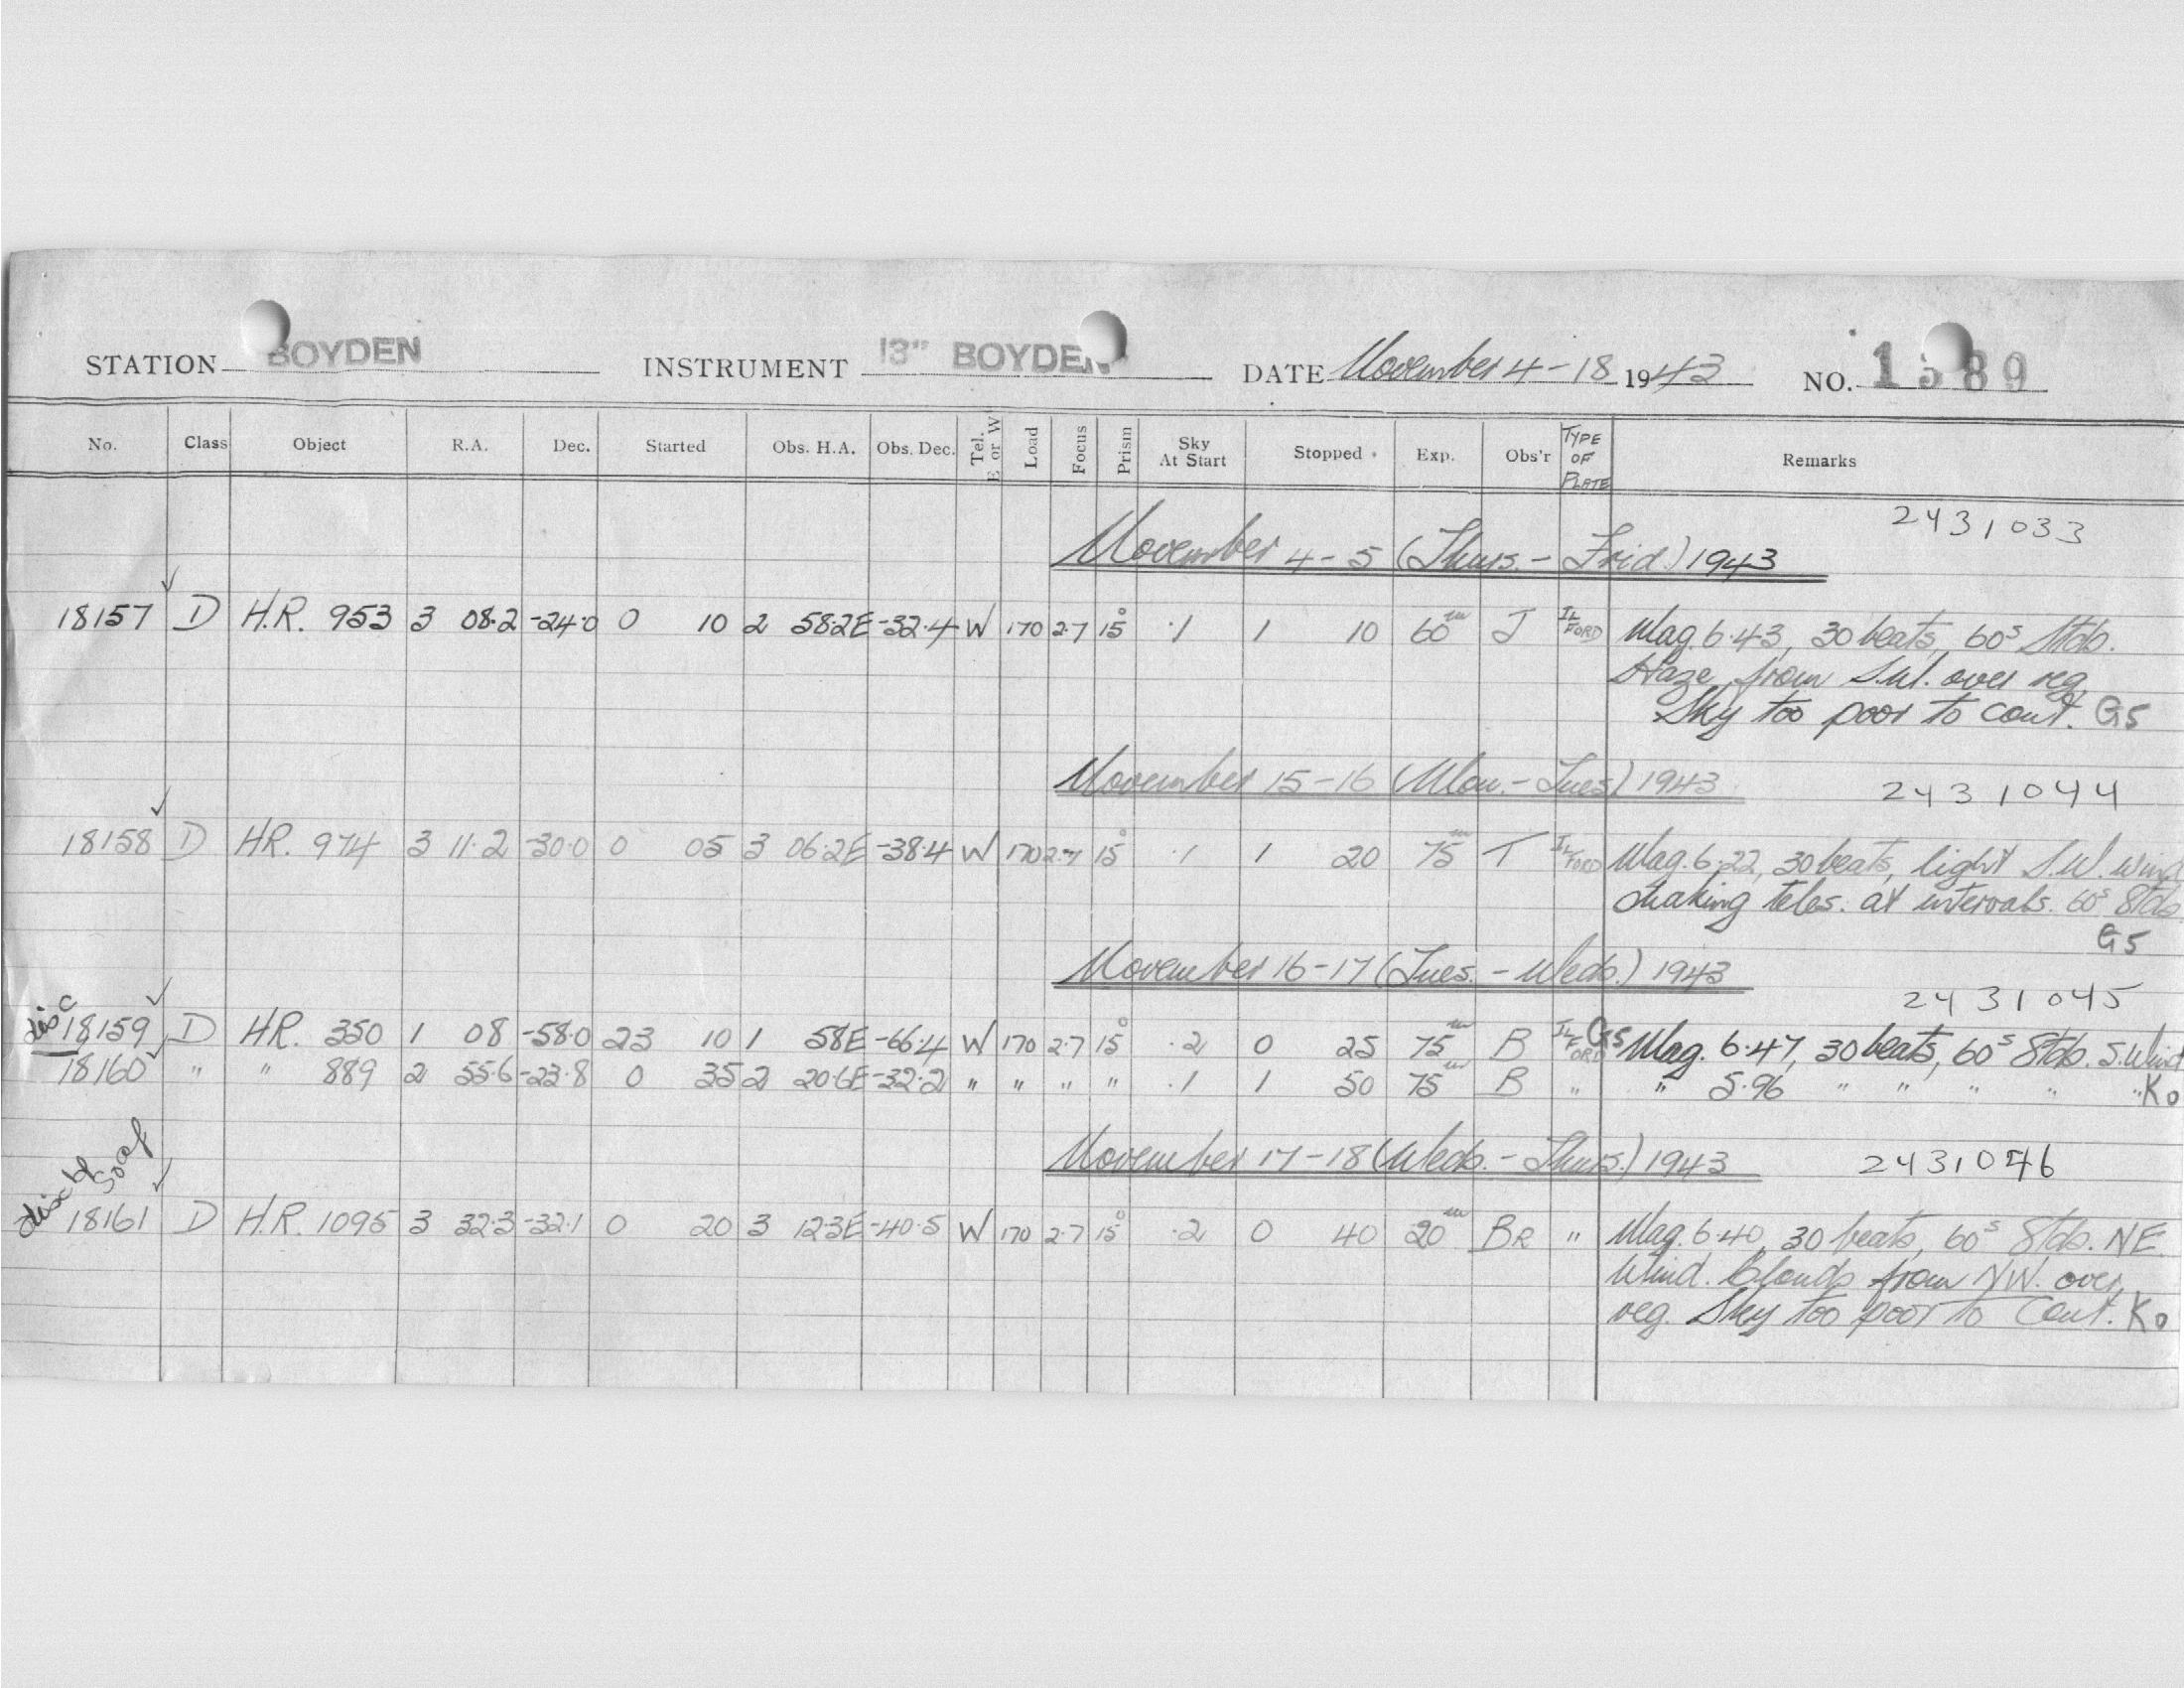 STATION BOYDEN INSTRUMENT 13" BOYDEN DATE November 4-18 1943 NO. 1589
No. Class Object R.A. Dec. Started Obs. H.A. Obs. Dec. Tel. E or W Load Focus Prism Sky At Start Stopped Exp. Obs'r TYPE OF PLATE Remarks
2431033
November 4-5 (Thurs.-Frid.) 1943
18157 ✓ D H.R. 953 3 08.2 -24.0 0 10 2 58.2E -32.4 W 170 2.7 15° .1 1 10 60m J ILFORD Mag. 6.43, 30 beats, 60s Stds.
Haze from S.W. over reg.
Sky too poor to cont. G5
November 15-16 (Mon.-Tues) 1943 2431044
18158 ✓ D HR. 974 3 11.2 -30.0 0 05 3 06.2E -38.4 W 170 2.7 15° .1 1 20 75m T ILFORD Mag. 6.22, 30 beats, light S.W. wind
shaking teles. at intervals. 60s Stds
G5
November 16-17 (Tues.-Weds.) 1943
2431045
disc 18159 ✓ D HR. 350 1 08 -58.0 23 10 1 58E -66.4 W 170 2.7 15° .2 0 25 75m B ILFORD G5 Mag. 6.47, 30 beats, 60s Stds. S. Wind
18160 ✓ " " 889 2 55.6 -23.8 0 35 2 20.6E -32.2 " " " " .1 1 50 75m B " " 5.96 " " " " " K0
November 17-18 (Weds.-Thurs.) 1943 2431046
disc 18161 ✓ D H.R. 1095 3 32.3 -32.1 0 20 3 12.3E -40.5 W 170 2.7 15° .2 0 40 20m BR " Mag. 6.40, 30 beats, 60s Stds. NE
Wind. Clouds from NW. over
reg. Sky too poor to Cont. K0